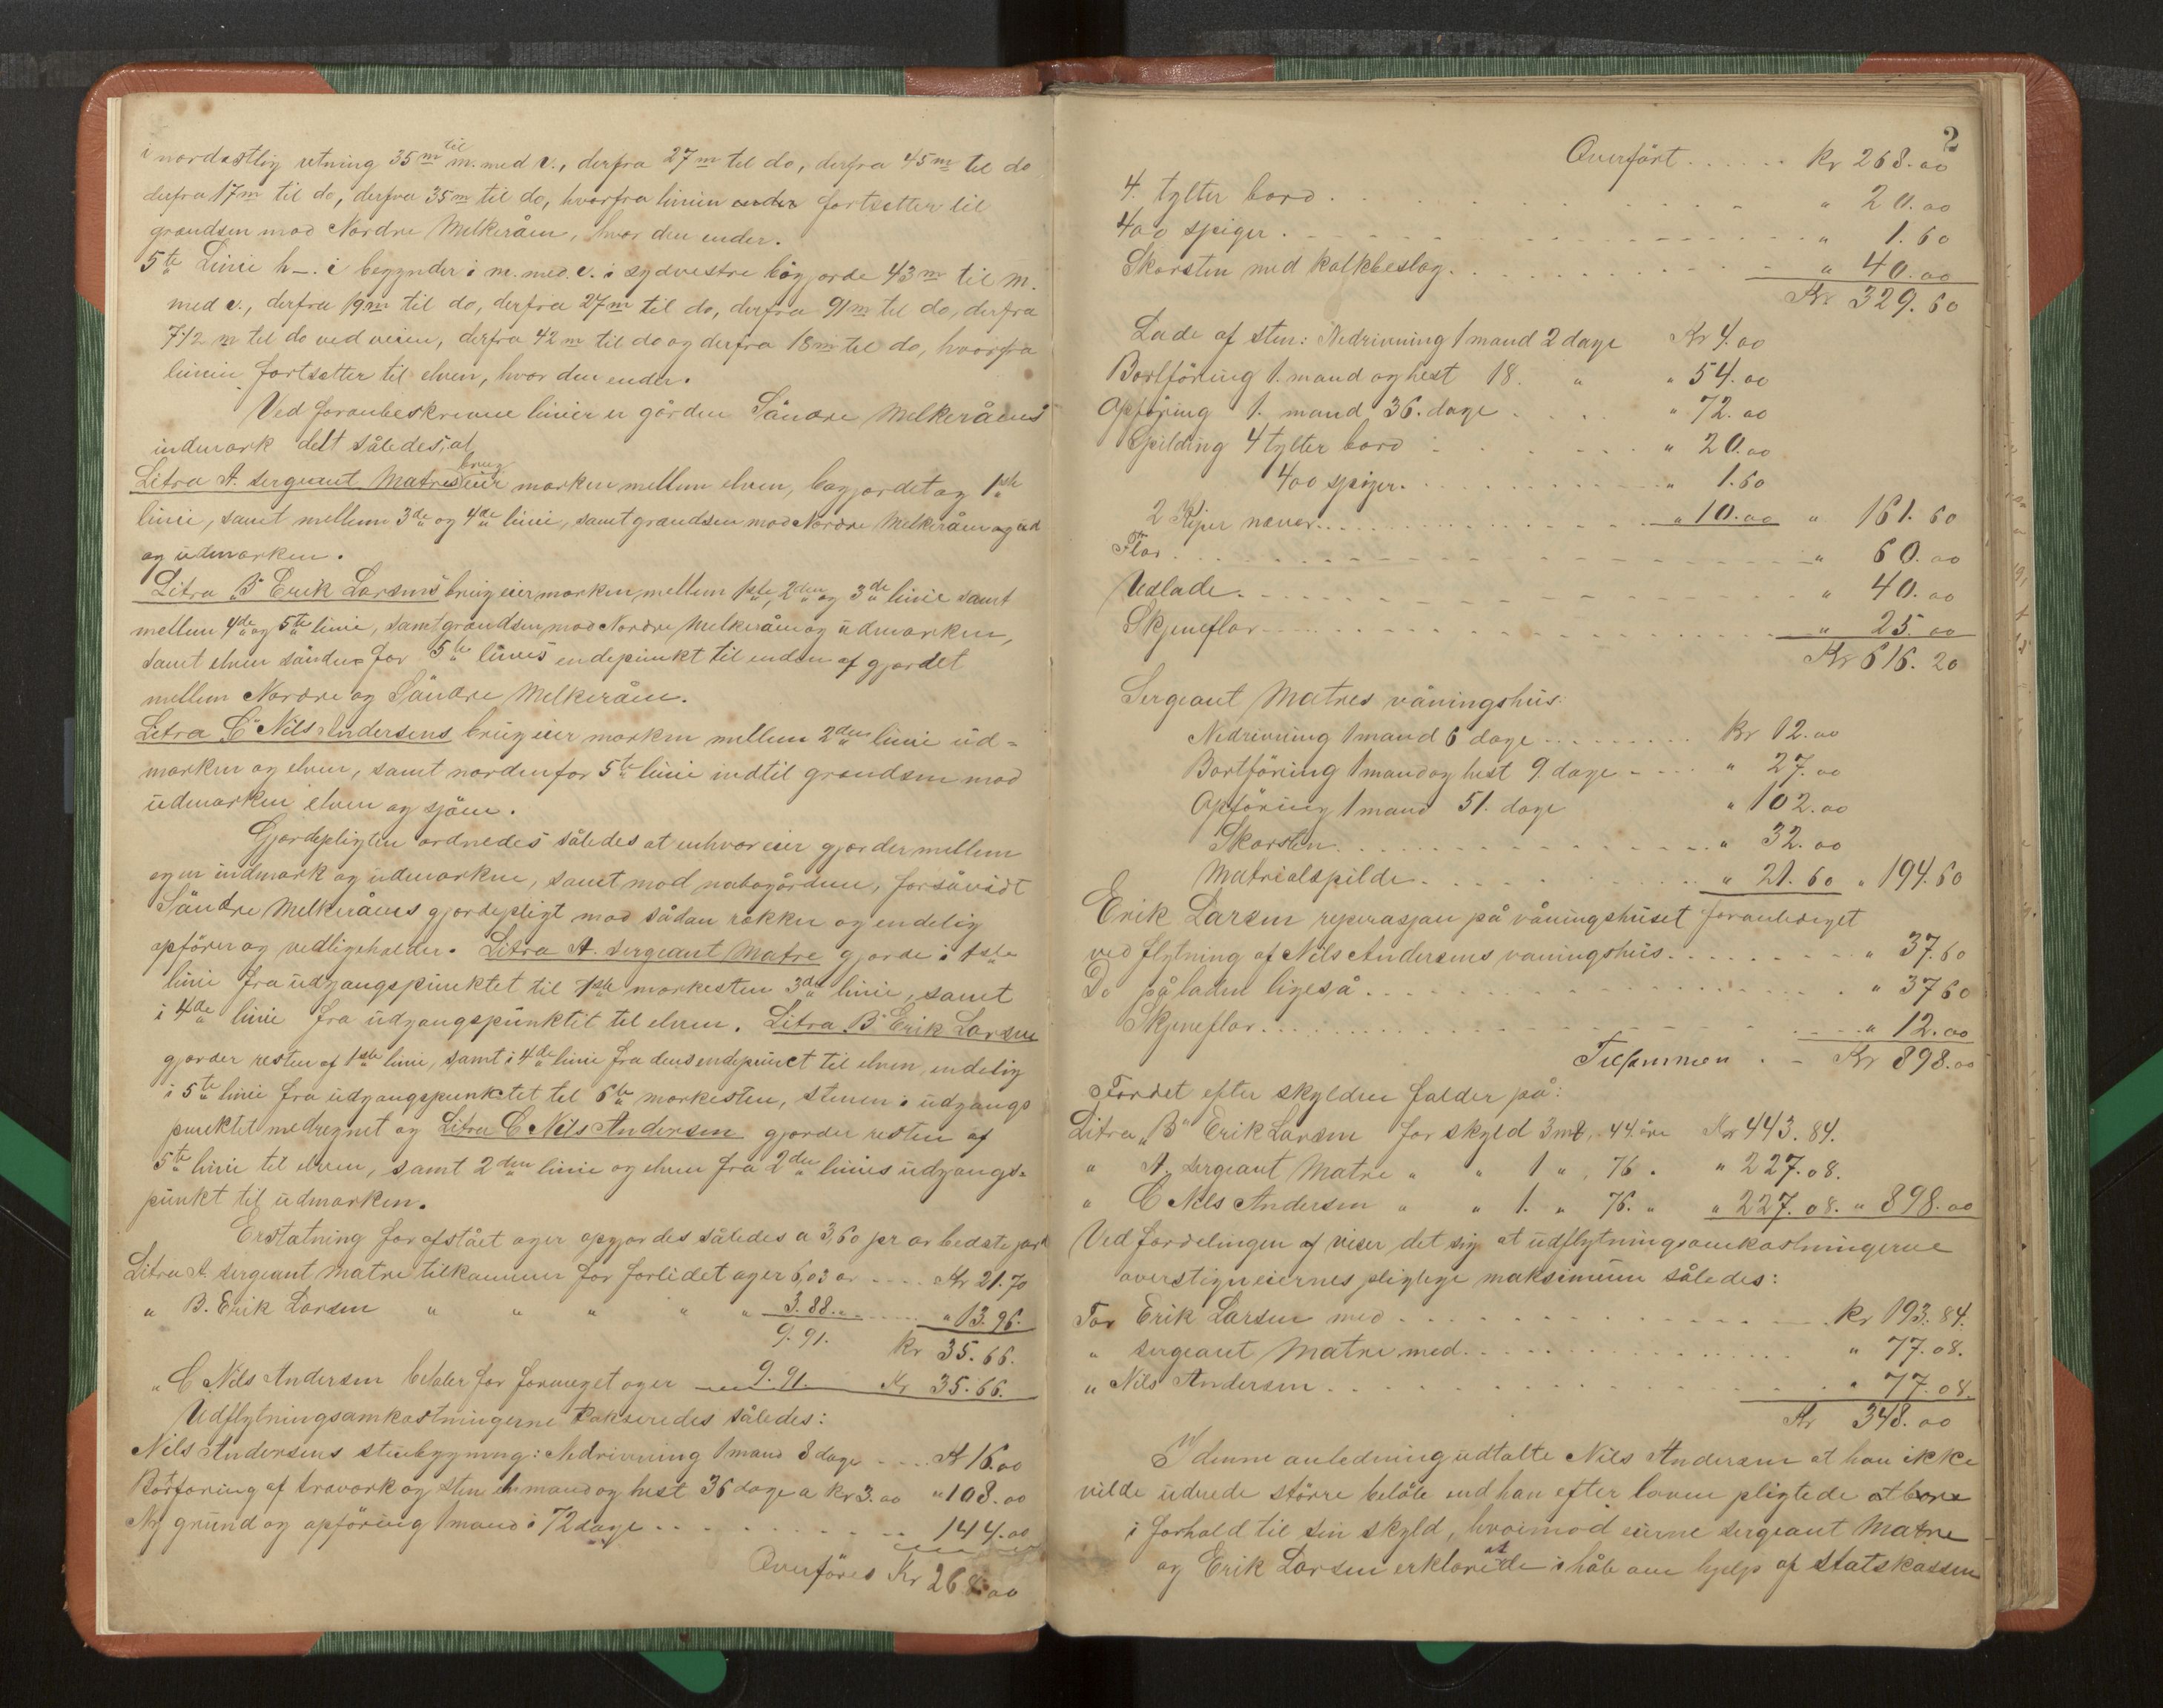 i nordøstlig retning 35 m til m. med v., derfra 27 m til do, derfra 45 m til do
derfra 17 m til do, derfra 35 m til do, hvorfra linien fortsetter til
grændsen mod Nordre Melkeråen, hvor den ender.
5te Linie h–i begynder i m. med v. i sydvestre bøgjorde 43 m til m.
med v., derfra 19 m til do, derfra 27 m til do, derfra 91 m til do, derfra
7 1/2 m til do ved veien, derfra 42 m til do og derfra 18 m til do, hvorfra
linien fortsætter til elven, hvor den ender.
Ved foranbeskrevne linier er gården Söndre Melkeråens
indmark delt således, at
Litra A. sergeant Matres brug eier marken mellem elven, bøgjordet og 1ste
linie, samt mellem 3de og 4de linie, samt grændsen mod Nordre Melkeråen og
og udmarken.
Litra B Erik Larsens brug eier marken mellem 1ste, 2den og 3de linie samt
mellem 4de og 5te linie, samt grændsen mod Nordre Melkeråen og udmarken,
samt elven sönden for 5te linies endepunkt til enden af gjærdet
mellem Nordre og Söndre Melkeråen.
Litra C Nils Andersens brug eier marken mellem 2den linie ud-
marken og elven, samt nordenfor 5te linie indtil grændsen mod
udmarken elven og sjöen.
Gjerdepligten ordnedes således at enhver eier gjerder mellem
egen indmark og udmarken, samt mod nabogården, forsåvidt
Söndre Melkeråens gjerdepligt mod sådan rækker og endelig
opförer og vedligeholder. Litra A. sergeant Matre gjerde i 1ste
linie fra udgangspunktet til 1ste merkesten 3de linie, samt
i 4de linie fra udgangspunktet til elven. Litra B Erik Larsen
gjerder resten af 1ste linie, samt i 4de linie fra dens endepunct til elven, endelig
i 5te linie fra udgangspunktet til 6te merkesten, stenen i udgangs
punktet medregnet og Litra C Nils Andersen gjerder resten af
5te linie til elven, samt 2den linie og elven fra 2den linies udgangs-
punkt til udmarken.
Erstatning for afstået ager opgjordes således a 3,60 pr ar bedste jord
Litra A. sergeant Matre tilkommer for forlidet ager 6,03 ar .... Kr 21.70
" B. Erik Larsen " " " " " 3.88 " ..... " 13.96.
9.91. Kr 35.66.
" C Nils Andersen betaler for formeget ager 9.91. Kr 35.66.
Udflytningsomkostningerne takseredes således:
Nils Andersens stuebygning: Nedrivning 1 mand 8 dage .... Kr 16.00
Bortföring af træværk og sten en mand og hest 36 dage a kr 3.00 " 108.00
Ny grund og opföring 1 mand i 72 dage ......... 144.00
Overföres Kr 268.00
2
Overfört ...... Kr 268.00
4. tylter bord ........ " 20.00
400 spiger ........ " 1.60
Skorsten med kalkbeslag ........ " 40.00
Kr 329.60
Lade af sten: Nedrivning 1 mand 2 dage Kr 4.00
Bortföring 1. mand og hest 18. " " 54.00
Opföring 1. mand 36. dage .... " 72.00
Spilding 4 tylter bord ..... " 20.00
400 spiger ........ " 1.60
2 Kiper næver ........ " 10.00 " 161.60
Flor ........ " 60.00
Vedlade ........ " 40.00
Skjeneflor ........ " 25.00
Kr 616.20
Sergeant Matres våningshus:
Nedrivning 1 mand 6 dage ........ Kr 12.00
Bortföring 1 mand og hest 9. dage .... " 27.00
Opföring 1 mand 51. dage " 102.00
Skorsten ........ " 32.00
Matrialspilde ........ " 21.60 " 194.60
Erik Larsen reperasjon på våningshuset foranlediget
ved flytning af Nils Andersens våningshus ........ " 37.60
Do på laden ligeså ........ " 37 60
Skjeneflor ........ " 12.00
Tilsammen . – Kr 898.00
Fordet efter skylden falder på:
Litra "B" Erik Larsen for skyld 3 mk. 44 öre Kr 443.84.
" A. sergeant Matre " " 1 " 76 . " 227.08.
" C Nils Andersen " " 1. " 76. " " 227.08. " 898.00
Ved fordelingen af viser det sig at udflytningsomkostningerne
overstiger eiernes pligtige maksimum således:
For Erik Larsen med ........ Kr 193.84.
" sergeant Matre med ........ " 77.08.
" Nils Andersen ........ " 77.08.
Kr 348.00
I denne anledning udtalte Nils Andersen at han ikke
vilde udrede större belöb end han efter loven pligtede at bære
i forhold til sin skyld, hvorimod eierne sergeant Matre
og Erik Larsen erklærede at i håb om hjelp af statskassen